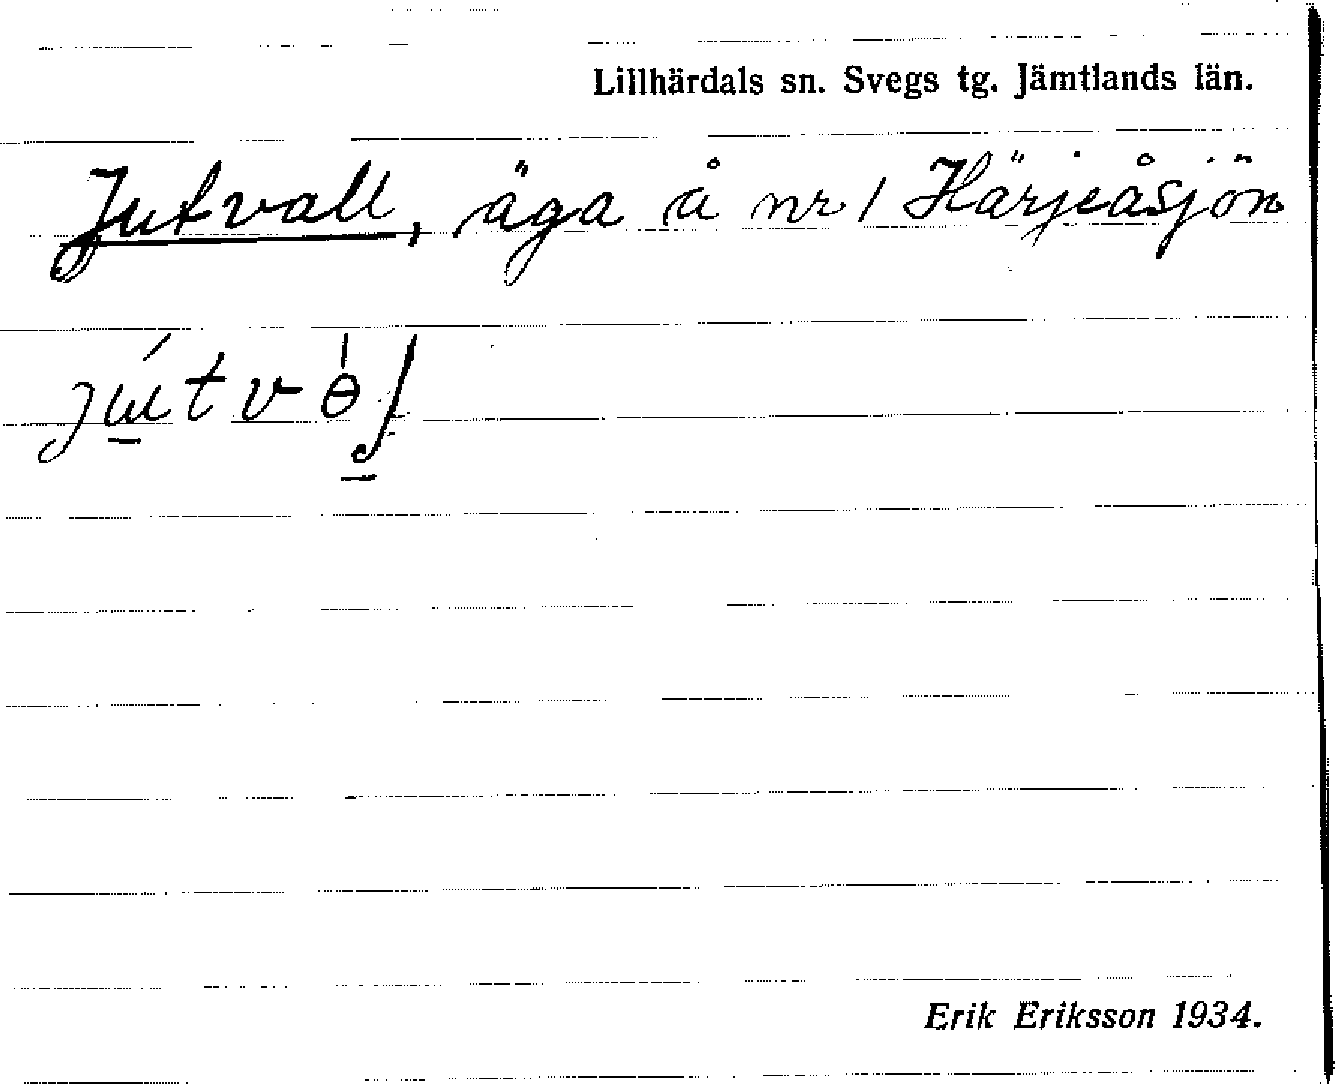 Lillhärdals sn. Svegs tg. Jämtlands län.
Jutvall, äga å nr 1 Härjeåsjön
Erik Eriksson 1934.